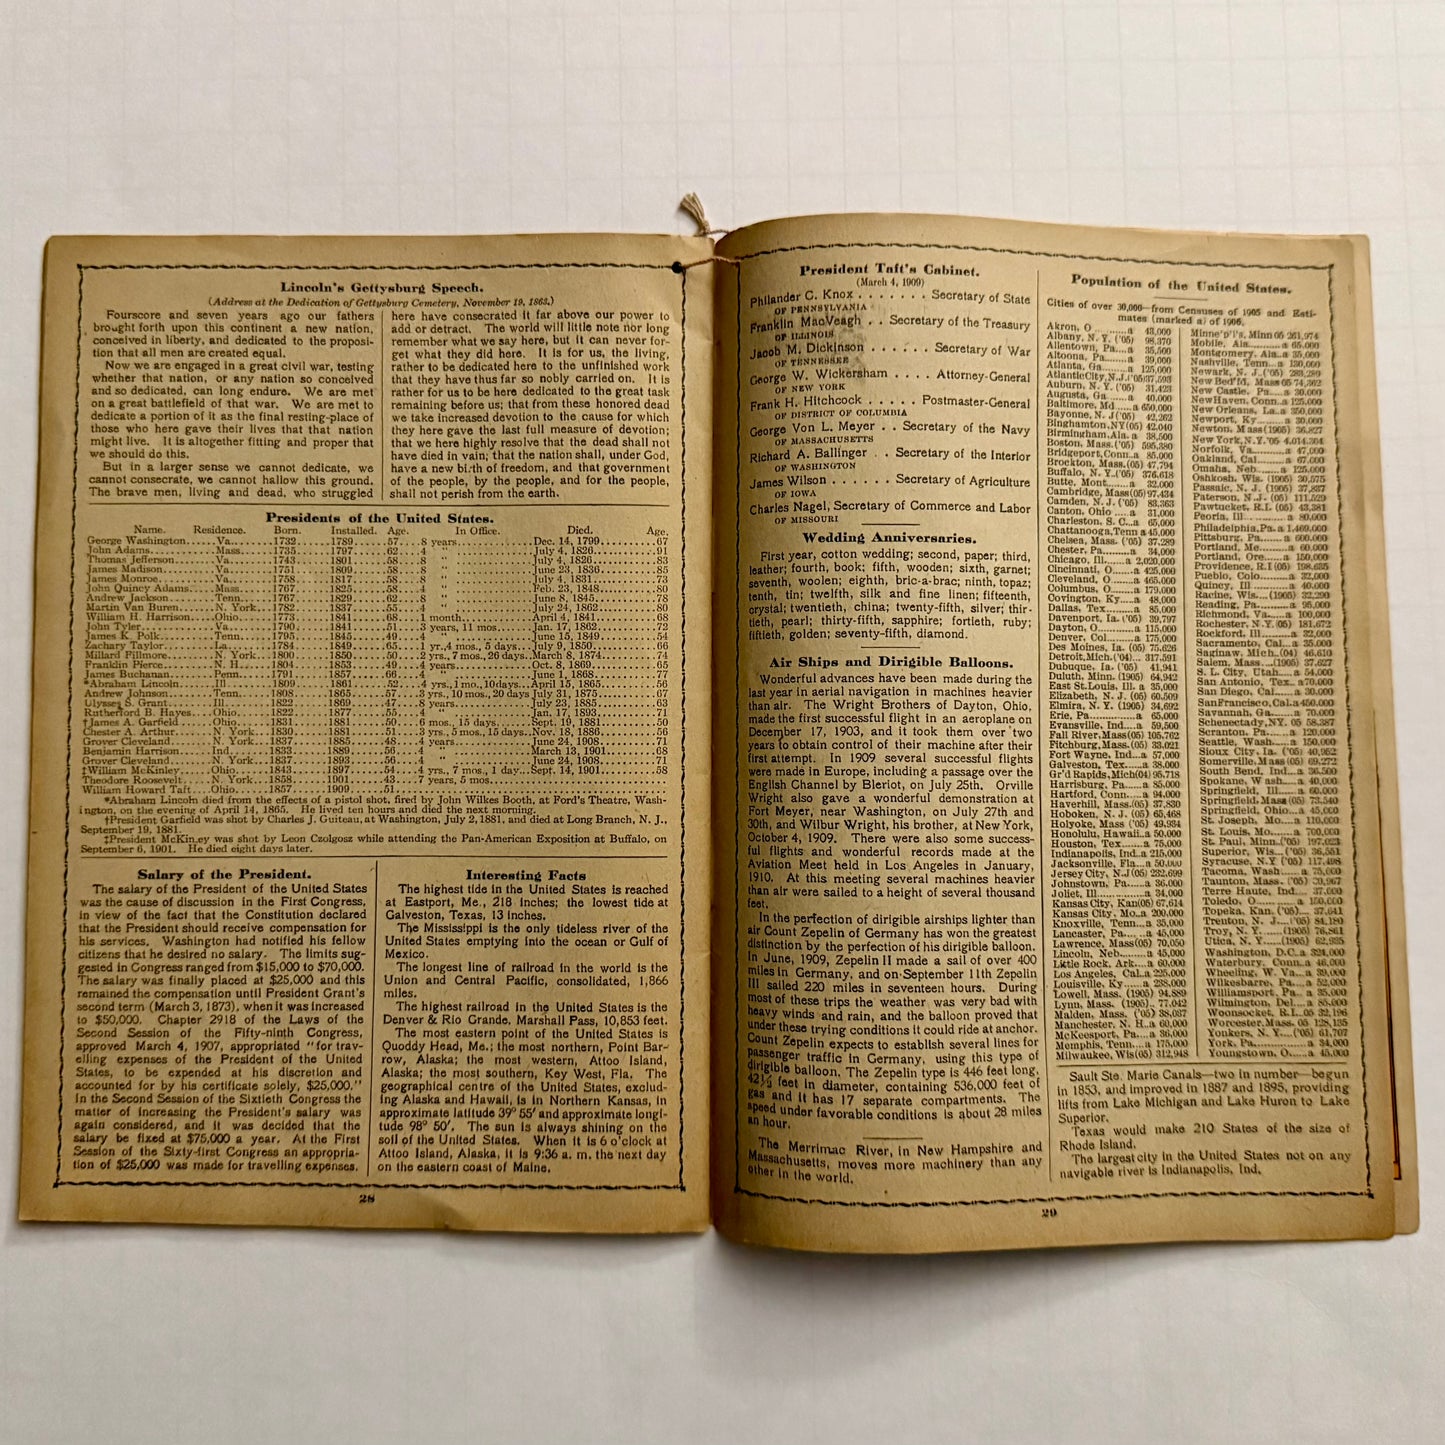 Lincoln's Gettysburg Speech.
(Address at the Dedication of Gettysburg Cemetery, November 19, 1863.)
Fourscore and seven years ago our fathers
brought forth upon this continent a new nation,
conceived in liberty, and dedicated to the proposi-
tion that all men are created equal.
Now we are engaged in a great civil war, testing
whether that nation, or any nation so conceived
and so dedicated, can long endure. We are met
on a great battlefield of that war. We are met to
dedicate a portion of it as the final resting-place of
those who here gave their lives that that nation
might live. It is altogether fitting and proper that
we should do this.
But in a larger sense we cannot dedicate, we
cannot consecrate, we cannot hallow this ground.
The brave men, living and dead, who struggled
here have consecrated it far above our power to
add or detract. The world will little note nor long
remember what we say here, but it can never for-
get what they did here. It is for us, the living,
rather to be dedicated here to the unfinished work
that they have thus far so nobly carried on. It is
rather for us to be here dedicated to the great task
remaining before us; that from these honored dead
we take increased devotion to the cause for which
they here gave the last full measure of devotion;
that we here highly resolve that the dead shall not
have died in vain; that the nation shall, under God,
have a new birth of freedom, and that government
of the people, by the people, and for the people,
shall not perish from the earth.
Presidents of the United States.
Name. Residence. Born. Installed. Age. In Office. Died. Age.
George Washington.....Va.....1732.....1789.....57...8 years.....Dec. 14, 1799.....67
John Adams.....Mass.....1735.....1797.....62...4 " .....July 4, 1826.....91
Thomas Jefferson.....Va.....1743.....1801.....58...8 " .....July 4, 1826.....83
James Madison.....Va.....1751.....1809.....58...8 " .....June 23, 1836.....85
James Monroe.....Va.....1758.....1817.....58...8 " .....July 4, 1831.....73
John Quincy Adams.....Mass.....1767.....1825.....58...4 " .....Feb. 23, 1848.....80
Andrew Jackson.....Tenn.....1767.....1829.....62...8 " .....June 8, 1845.....78
Martin Van Buren.....N. York...1782.....1837.....55...4 " .....July 24, 1862.....80
William H. Harrison.....Ohio.....1773.....1841.....68...1 month.....April 4, 1841.....68
John Tyler.....Va.....1790.....1841.....51...3 years, 11 mos....Jan. 17, 1862.....72
James K. Polk.....Tenn.....1795.....1845.....49...4 " .....June 15, 1849.....54
Zachary Taylor.....La.....1784.....1849.....65...1 yr.,4 mos., 5 days...July 9, 1850.....66
Millard Fillmore.....N. York...1800.....1850.....50...2 yrs., 7 mos., 26 days..March 8, 1874.....74
Franklin Pierce.....N. H.....1804.....1853.....49...4 years.....Oct. 8, 1869.....65
James Buchanan.....Penn.....1791.....1857.....66...4 " .....June 1, 1868.....77
*Abraham Lincoln.....Ill.....1809.....1861.....52...4 yrs., 1 mo., 10days...April 15, 1865.....56
Andrew Johnson.....Tenn.....1808.....1865.....57...3 yrs., 10 mos., 20 days July 31, 1875.....67
Ulysses S. Grant.....Ill.....1822.....1869.....47...8 years.....July 23, 1885.....63
Rutherford B. Hayes...Ohio.....1822.....1877.....55...4 " .....Jan. 17, 1893.....71
†James A. Garfield.....Ohio.....1831.....1881.....50...6 mos., 15 days.....Sept. 19, 1881.....50
Chester A. Arthur.....N. York...1830.....1881.....51...3 yrs., 5 mos., 15 days..Nov. 18, 1886.....56
Grover Cleveland.....N. York...1837.....1885.....48...4 years.....June 24, 1908.....71
Benjamin Harrison.....Ind.....1833.....1889.....56...4 " .....March 13, 1901.....68
Grover Cleveland.....N. York...1837.....1893.....56...4 " .....June 24, 1908.....71
‡William McKinley.....Ohio.....1843.....1897.....54...4 yrs., 7 mos., 1 day...Sept. 14, 1901.....58
Theodore Roosevelt.....N. York...1858.....1901.....43...7 years, 5 mos.
William Howard Taft...Ohio.....1857.....1909.....51
*Abraham Lincoln died from the effects of a pistol shot, fired by John Wilkes Booth, at Ford's Theatre, Wash-
ington, on the evening of April 14, 1865. He lived ten hours and died the next morning.
†President Garfield was shot by Charles J. Guiteau, at Washington, July 2, 1881, and died at Long Branch, N. J.,
September 19, 1881.
‡President McKinley was shot by Leon Czolgosz while attending the Pan-American Exposition at Buffalo, on
September 6, 1901. He died eight days later.
Salary of the President.
The salary of the President of the United States
was the cause of discussion in the First Congress,
in view of the fact that the Constitution declared
that the President should receive compensation for
his services. Washington had notified his fellow
citizens that he desired no salary. The limits sug-
gested in Congress ranged from $15,000 to $70,000.
The salary was finally placed at $25,000 and this
remained the compensation until President Grant's
second term (March 3, 1873), when it was increased
to $50,000. Chapter 2918 of the Laws of the
Second Session of the Fifty-ninth Congress,
approved March 4, 1907, appropriated "for trav-
elling expenses of the President of the United
States, to be expended at his discretion and
accounted for by his certificate solely, $25,000."
In the Second Session of the Sixtieth Congress the
matter of increasing the President's salary was
again considered, and it was decided that the
salary be fixed at $75,000 a year. At the First
Session of the Sixty-first Congress an appropria-
tion of $25,000 was made for travelling expenses.
Interesting Facts
The highest tide in the United States is reached
at Eastport, Me., 218 inches; the lowest tide at
Galveston, Texas, 13 inches.
The Mississippi is the only tideless river of the
United States emptying into the ocean or Gulf of
Mexico.
The longest line of railroad in the world is the
Union and Central Pacific, consolidated, 1,866
miles.
The highest railroad in the United States is the
Denver & Rio Grande, Marshall Pass, 10,853 feet.
The most eastern point of the United States is
Quoddy Head, Me.; the most northern, Point Bar-
row, Alaska; the most western, Attoo Island,
Alaska; the most southern, Key West, Fla. The
geographical centre of the United States, exclud-
ing Alaska and Hawaii, is in Northern Kansas, in
approximate latitude 39° 55' and approximate longi-
tude 98° 50'. The sun is always shining on the
soil of the United States. When it is 6 o'clock at
Attoo Island, Alaska, it is 9:36 a. m. the next day
on the eastern coast of Maine.
28
President Taft's Cabinet.
(March 4, 1909)
Philander C. Knox . . . . . . . Secretary of State
OF PENNSYLVANIA
Franklin MacVeagh . . Secretary of the Treasury
OF ILLINOIS
Jacob M. Dickinson . . . . . . Secretary of War
OF TENNESSEE
George W. Wickersham . . . . Attorney-General
OF NEW YORK
Frank H. Hitchcock . . . . . Postmaster-General
OF DISTRICT OF COLUMBIA
George Von L. Meyer . . Secretary of the Navy
OF MASSACHUSETTS
Richard A. Ballinger . . Secretary of the Interior
OF WASHINGTON
James Wilson . . . . . . Secretary of Agriculture
OF IOWA
Charles Nagel, Secretary of Commerce and Labor
OF MISSOURI
Wedding Anniversaries.
First year, cotton wedding; second, paper; third,
leather; fourth, book; fifth, wooden; sixth, garnet;
seventh, woolen; eighth, bric-a-brac; ninth, topaz;
tenth, tin; twelfth, silk and fine linen; fifteenth,
crystal; twentieth, china; twenty-fifth, silver; thir-
tieth, pearl; thirty-fifth, sapphire; fortieth, ruby;
fiftieth, golden; seventy-fifth, diamond.
Air Ships and Dirigible Balloons.
Wonderful advances have been made during the
last year in aerial navigation in machines heavier
than air. The Wright Brothers of Dayton, Ohio,
made the first successful flight in an aeroplane on
December 17, 1903, and it took them over two
years to obtain control of their machine after their
first attempt. In 1909 several successful flights
were made in Europe, including a passage over the
English Channel by Bleriot, on July 25th. Orville
Wright also gave a wonderful demonstration at
Fort Meyer, near Washington, on July 27th and
30th, and Wilbur Wright, his brother, at New York,
October 4, 1909. There were also some success-
ful flights and wonderful records made at the
Aviation Meet held in Los Angeles in January,
1910. At this meeting several machines heavier
than air were sailed to a height of several thousand
feet.
In the perfection of dirigible airships lighter than
air Count Zepelin of Germany has won the greatest
distinction by the perfection of his dirigible balloon.
In June, 1909, Zepelin II made a sail of over 400
miles in Germany, and on September 11th Zepelin
III sailed 220 miles in seventeen hours. During
most of these trips the weather was very bad with
heavy winds and rain, and the balloon proved that
under these trying conditions it could ride at anchor.
Count Zepelin expects to establish several lines for
passenger traffic in Germany, using this type of
dirigible balloon. The Zepelin type is 446 feet long,
42½ feet in diameter, containing 536,000 feet of
gas and it has 17 separate compartments. The
speed under favorable conditions is about 28 miles
an hour.
The Merrimac River, in New Hampshire and
Massachusetts, moves more machinery than any
other in the world.
Population of the United States.
Cities of over 30,000—from Censuses of 1905 and Esti-
mates (marked a) of 1906.
Akron, O........a 43,000
Albany, N. Y. ('05) 98,370
Allentown, Pa....a 35,500
Altoona, Pa......a 39,000
Atlanta, Ga......a 125,000
AtlanticCity,N.J.('05)37,593
Auburn, N. Y. ('05) 31,423
Augusta, Ga .....a 40,000
Baltimore, Md ....a 650,000
Bayonne, N. J ('05) 42,262
Binghamton,NY(05) 42,040
Birmingham,Ala. a 38,500
Boston, Mass. ('05) 595,380
Bridgeport,Conn..a 85,000
Brockton, Mass.(05) 47,794
Buffalo, N. Y..('05) 376,618
Butte, Mont......a 32,000
Cambridge, Mass(05) 97,434
Camden, N. J. ('05) 83,363
Canton, Ohio ....a 31,000
Charleston, S. C..a 65,000
Chattanooga, Tenn a 45,000
Chelsea, Mass. ('05) 37,289
Chester, Pa......a 34,000
Chicago, Ill......a 2,020,000
Cincinnati, O ....a 425,000
Cleveland, O ....a 465,000
Columbus, O.....a 179,000
Covington, Ky....a 48,000
Dallas, Tex......a 85,000
Davenport, Ia. ('05) 39,797
Dayton, O.......a 115,000
Denver, Col......a 175,000
Des Moines, Ia. (05) 75,626
Detroit,Mich.('04)... 317,591
Dubuque, Ia. ('05) 41,941
Duluth, Minn. (1905) 64,942
East St.Louis, Ill. a 35,000
Elizabeth, N. J. (05) 60,509
Elmira, N. Y. (1905) 34,692
Erie, Pa.........a 65,000
Evansville, Ind....a 59,500
Fall River,Mass(05) 105,762
Fitchburg,Mass.(05) 33,021
Fort Wayne, Ind...a 57,000
Galveston, Tex.....a 38,000
Gr'd Rapids,Mich(04) 95,718
Harrisburg, Pa.....a 85,000
Hartford, Conn....a 94,000
Haverhill, Mass.(05) 37,830
Hoboken, N. J. (05) 65,468
Holyoke, Mass ('05) 49,934
Honolulu, Hawaii..a 50,000
Houston, Tex......a 75,000
Indianapolis, Ind..a 215,000
Jacksonville, Fla...a 50,000
Jersey City, N.J(05) 232,699
Johnstown, Pa.....a 36,000
Joliet, Ill........a 34,000
Kansas City, Kan(05) 67,614
Kansas City, Mo..a 200,000
Knoxville, Tenn...a 35,000
Lancaster, Pa.....a 45,000
Lawrence, Mass(05) 70,050
Lincoln, Neb......a 45,000
Little Rock, Ark...a 60,000
Los Angeles, Cal..a 225,000
Louisville, Ky.....a 238,000
Lowell, Mass. (1905) 94,889
Lynn, Mass. (1905).. 77,042
Malden, Mass. ('05) 38,037
Manchester, N. H..a 60,000
McKeesport, Pa....a 36,000
Memphis, Tenn....a 175,000
Milwaukee, Wis(05) 312,948
Minne'p'l's, Minn 05 261,974
Mobile, Ala.......a 65,000
Montgomery, Ala..a 35,000
Nashville, Tenn...a 130,000
Newark, N. J.('05) 283,289
New Bed'fd, Mass 05 74,362
New Castle, Pa....a 30,000
NewHaven, Conn..a 125,000
New Orleans, La..a 350,000
Newport, Ky......a 30,000
Newton, Mass (1905) 36,827
New York,N.Y.'05 4,014,304
Norfolk, Va......a 47,000
Oakland, Cal.....a 67,000
Omaha, Neb......a 125,000
Oshkosh, Wis. (1905) 30,575
Passaic, N. J. (1905) 37,837
Paterson, N.J. (05) 111,529
Pawtucket, R.I. (05) 43,381
Peoria, Ill.......a 80,000
Philadelphia,Pa.a 1,469,000
Pittsburg, Pa....a 600,000
Portland, Me.....a 60,000
Portland, Ore....a 150,000
Providence, R.I (05) 198,635
Pueblo, Colo.....a 32,000
Quincy, Ill ......a 40,000
Racine, Wis....(1905) 32,290
Reading, Pa......a 95,000
Richmond, Va....a 100,000
Rochester, N.Y.(05) 181,672
Rockford, Ill.....a 32,000
Sacramento, Cal...a 35,000
Saginaw, Mich..(04) 46,610
Salem, Mass....(1905) 37,627
S. L. City, Utah....a 54,000
San Antonio, Tex..a 70,000
San Diego, Cal....a 30,000
SanFrancisco,Cal.a 450,000
Savannah, Ga.....a 70,000
Schenectady,NY. 05 58,387
Scranton, Pa.....a 120,000
Seattle, Wash....a 150,000
Sioux City, Ia. ('05) 40,952
Somerville, Mass (05) 69,272
South Bend, Ind...a 36,500
Spokane, Wash...a 40,000
Springfield, Ill....a 60,000
Springfield, Mass (05) 73,540
Springfield, Ohio...a 45,000
St. Joseph, Mo....a 110,000
St. Louis, Mo.....a 700,000
St. Paul, Minn.('05) 197,023
Superior, Wis...('05) 36,551
Syracuse, N.Y ('05) 117,498
Tacoma, Wash ....a 75,000
Taunton, Mass. ('05) 30,967
Terre Haute, Ind... 37,000
Toledo, O........a 150,000
Topeka, Kan. ('05).... 37,641
Trenton, N. J....('05) 84,180
Troy, N. Y. .....(1905) 76,861
Utica, N. Y......(1905) 62,935
Washington, D.C..a 324,000
Waterbury, Conn..a 46,000
Wheeling, W. Va...a 39,000
Wilkesbarre, Pa...a 52,000
Williamsport, Pa..a 35,000
Wilmington, Del...a 85,000
Woonsocket, R.I..05 32,196
Worcester, Mass. 05 128,135
Yonkers, N. Y...('05) 61,707
York, Pa.........a 34,000
Youngstown, O....a 45,000
Sault Ste. Marie Canals—two in number—begun
in 1853, and improved in 1887 and 1895, providing
lifts from Lake Michigan and Lake Huron to Lake
Superior.
Texas would make 210 States of the size of
Rhode Island.
The largest city in the United States not on any
navigable river is Indianapolis, Ind.
29